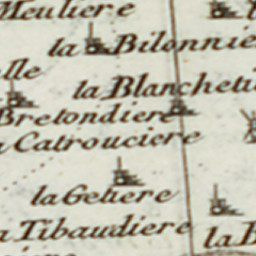 Meuliere
la Bilonnie
lle
la Blancheti
Bretondiere
a Catrouciere
la Getiere
a Tibaudiere
la B